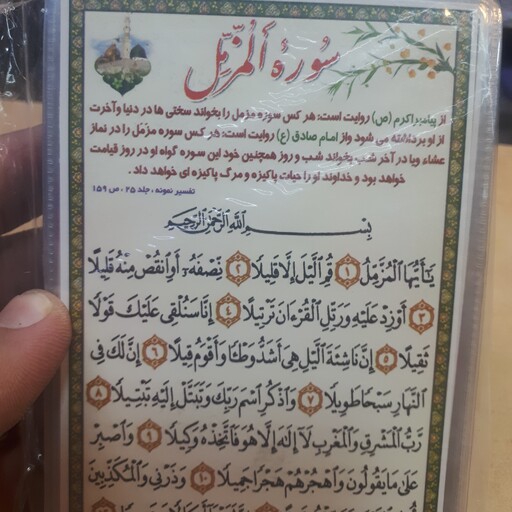 سورة المزمل
از پیامبر اکرم (ص) روایت است: هر کس سوره مزمل را بخواند سختی ها در دنیا و آخرت
از او برداشته می شود و از امام صادق (ع) روایت است: هر کس سوره مزمل را در نماز
عشاء ویا در آخر شب بخواند شب و روز همچنین خود این سوره گواه او در روز قیامت
خواهد بود و خداوند او را حیات پاکیزه و مرگ پاکیزه ای خواهد داد .
تفسیر نمونه ، جلد ۲۵ ، ص ۱۵۹
بِسْمِ اللَّهِ الرَّحْمَنِ الرَّحِيمِ
يَا أَيُّهَا الْمُزَّمِّلُ ۱ قُمِ اللَّيْلَ إِلَّا قَلِيلًا ۲ نِصْفَهُ أَوِ انْقُصْ مِنْهُ قَلِيلًا
۳ أَوْ زِدْ عَلَيْهِ وَرَتِّلِ الْقُرْءَانَ تَرْتِيلًا ۴ إِنَّا سَنُلْقِي عَلَيْكَ قَوْلًا
ثَقِيلًا ۵ إِنَّ نَاشِئَةَ اللَّيْلِ هِيَ أَشَدُّ وَطْئًا وَأَقْوَمُ قِيلًا ۶ إِنَّ لَكَ فِي
النَّهَارِ سَبْحًا طَوِيلًا ۷ وَاذْكُرِ اسْمَ رَبِّكَ وَتَبَتَّلْ إِلَيْهِ تَبْتِيلًا ۸
رَبُّ الْمَشْرِقِ وَالْمَغْرِبِ لَا إِلَهَ إِلَّا هُوَ فَاتَّخِذْهُ وَكِيلًا ۹ وَاصْبِرْ
عَلَى مَا يَقُولُونَ وَاهْجُرْهُمْ هَجْرًا جَمِيلًا ۱۰ وَذَرْنِي وَالْمُكَذِّبِينَ